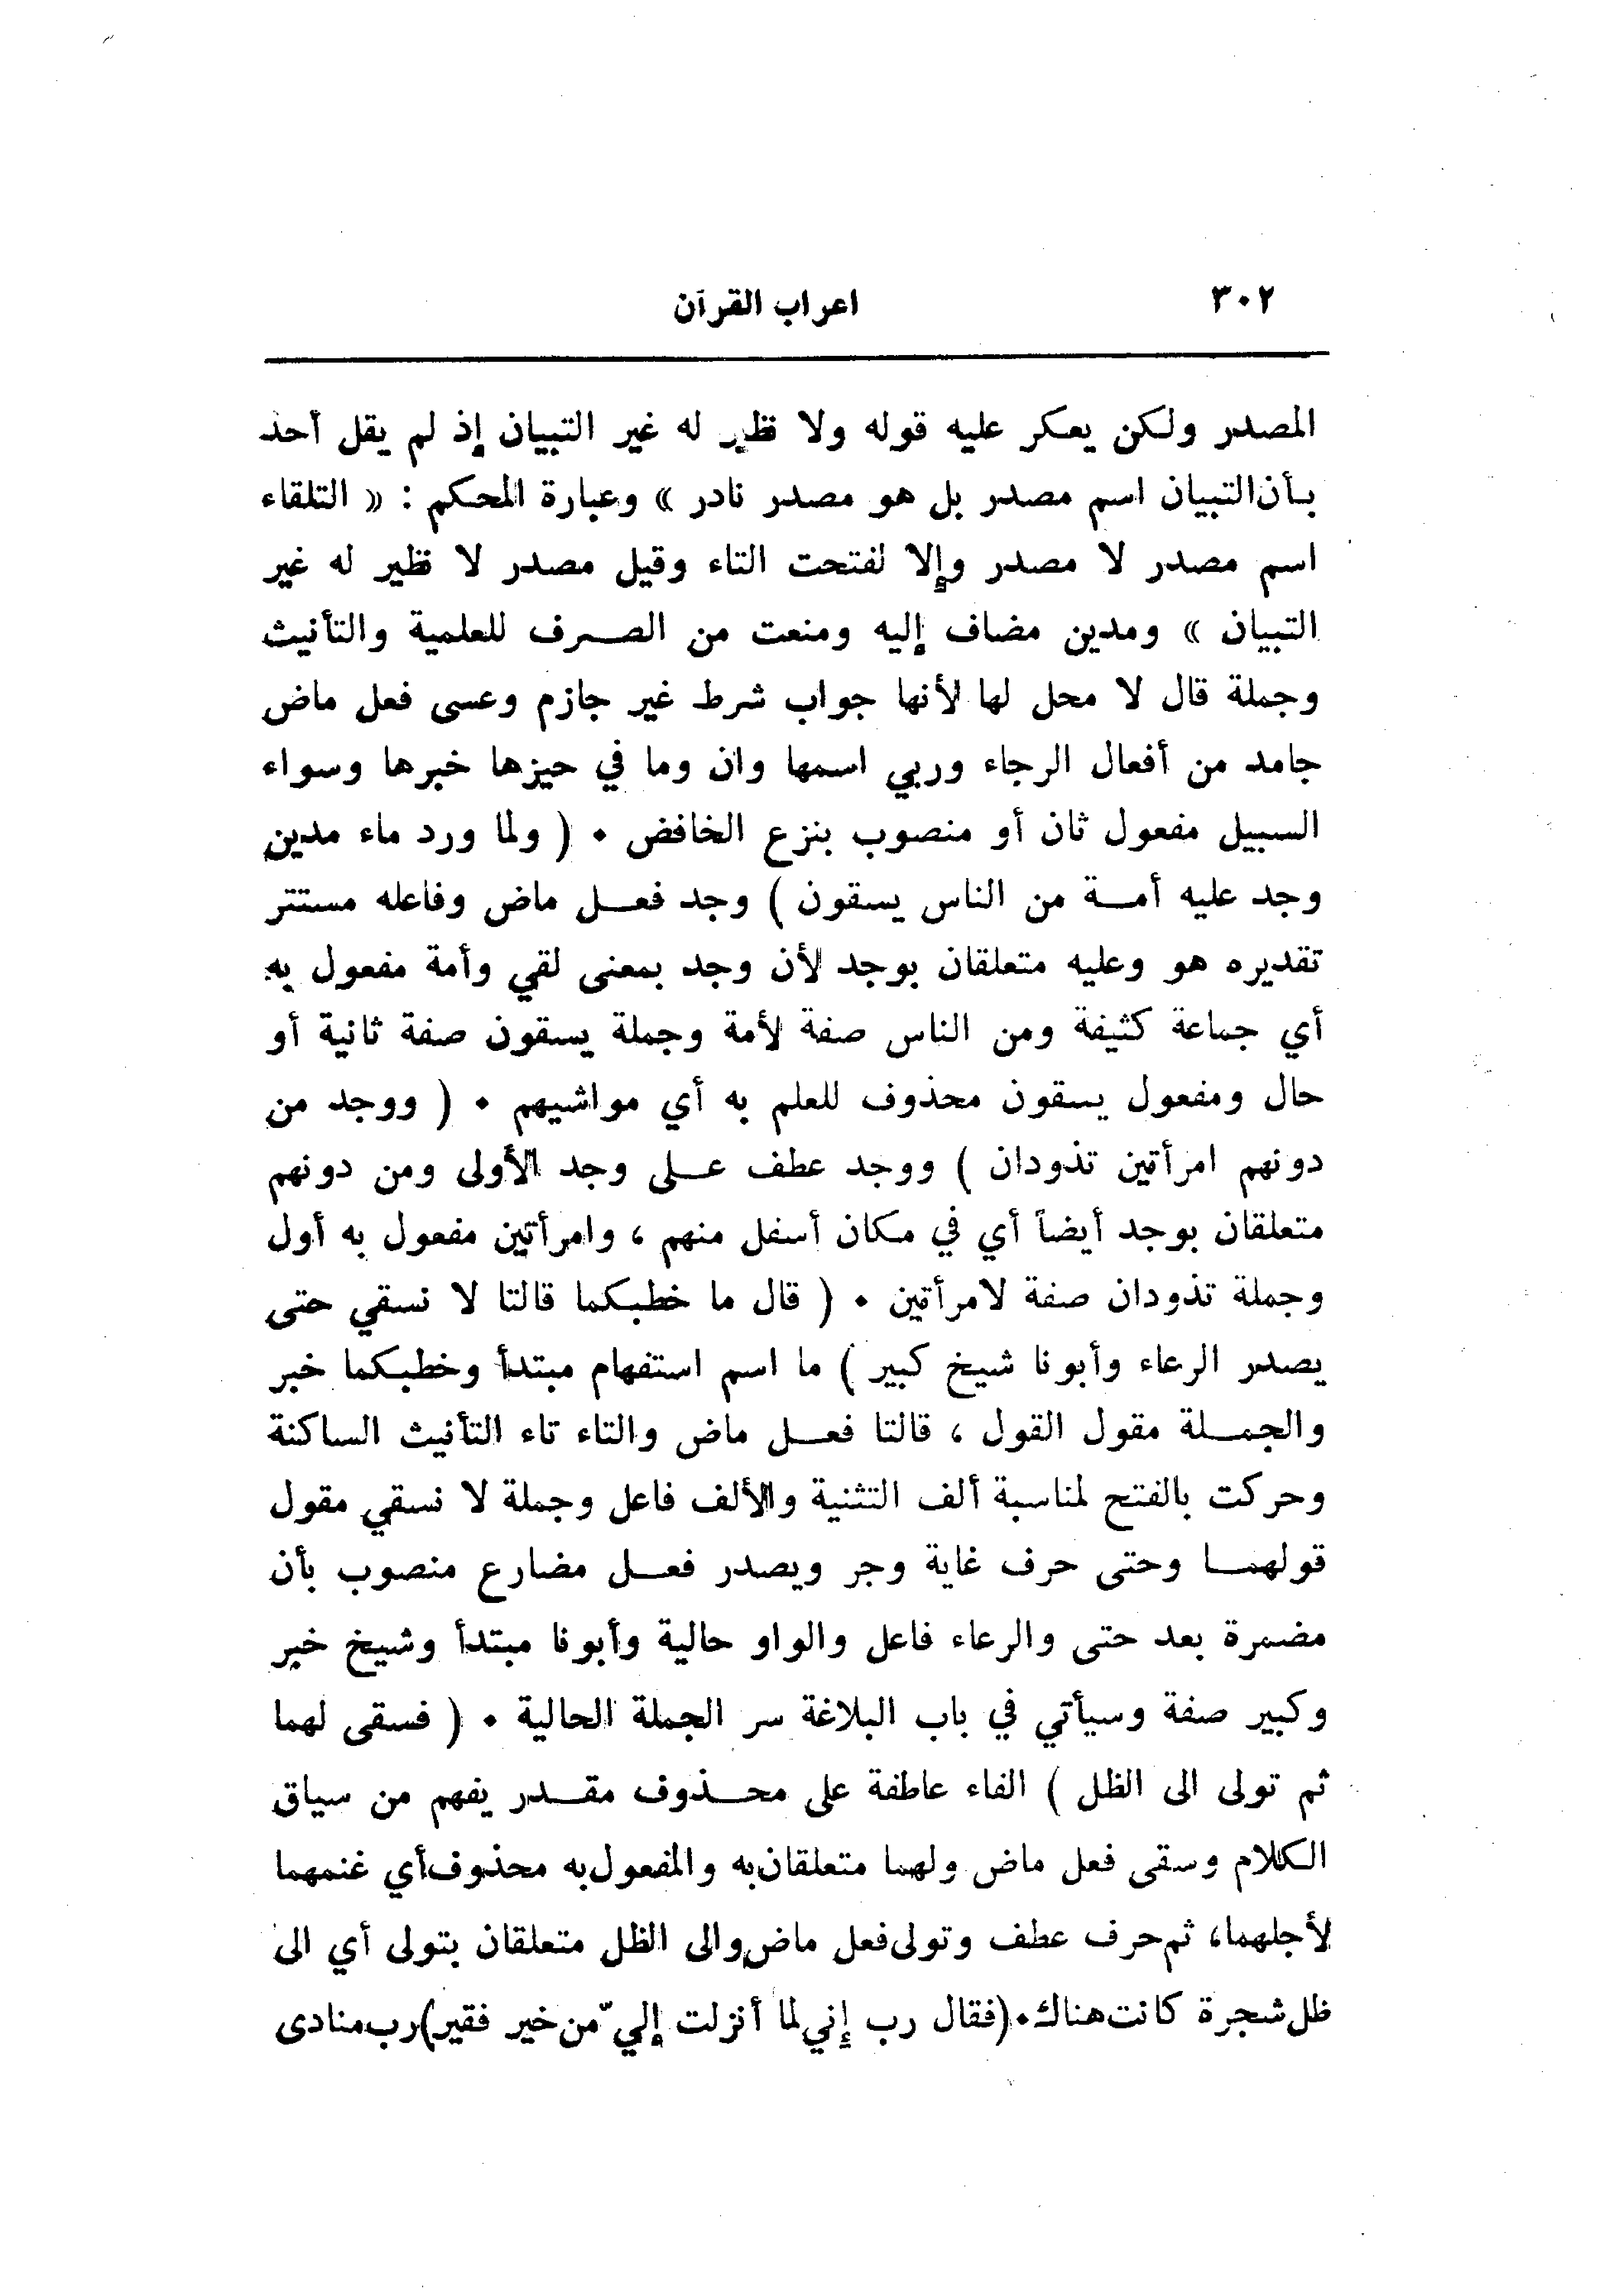 ٣٠٢ اعراب القرآن
المصدر ولكن يعكر عليه قوله ولا نظير له غير التبيان إذ لم يقل أحد
بأن التبيان اسم مصدر بل هو مصدر نادر » وعبارة المحكم : « التلقاء
اسم مصدر لا مصدر وإلا لفتحت التاء وقيل مصدر لا نظير له غير
التبيان » ومدين مضاف إليه ومنعت من الصرف للعلمية والتأنيث
وجملة قال لا محل لها لأنها جواب شرط غير جازم وعسى فعل ماض
جامد من أفعال الرجاء وربي اسمها وان وما في حيزها خبرها وسواء
السبيل مفعول ثان أو منصوب بنزع الخافض ٠ ( ولما ورد ماء مدين
وجد عليه أمة من الناس يسقون ) وجد فعل ماض وفاعله مستتر
تقديره هو وعليه متعلقان بوجد لأن وجد بمعنى لقي وأمة مفعول به
أي جماعة كثيفة ومن الناس صفة لأمة وجملة يسقون صفة ثانية أو
حال ومفعول يسقون محذوف للعلم به أي مواشيهم ٠ ( ووجد من
دونهم امرأتين تذودان ) ووجد عطف على وجد الأولى ومن دونهم
متعلقان بوجد أيضاً أي في مكان أسفل منهم ، وامرأتين مفعول به أول
وجملة تذودان صفة لامرأتين ٠ ( قال ما خطبكما قالتا لا نسقي حتى
يصدر الرعاء وأبونا شيخ كبير ) ما اسم استفهام مبتدأ وخطبكما خبر
والجملة مقول القول ، قالتا فعل ماض والتاء تاء التأنيث الساكنة
وحركت بالفتح لمناسبة ألف التثنية والألف فاعل وجملة لا نسقي مقول
قولهما وحتى حرف غاية وجر ويصدر فعل مضارع منصوب بأن
مضمرة بعد حتى والرعاء فاعل والواو حالية وأبونا مبتدأ وشيخ خبر
وكبير صفة وسيأتي في باب البلاغة سر الجملة الحالية ٠ ( فسقى لهما
ثم تولى الى الظل ) الفاء عاطفة على محذوف مقدر يفهم من سياق
الكلام وسقى فعل ماض ولهما متعلقان به والمفعول به محذوف أي غنمهما
لأجلهما، ثم حرف عطف وتولى فعل ماض والى الظل متعلقان بتولى أي الى
ظل شجرة كانت هناك٠ (فقال رب إني لما أنزلت إليّ من خير فقير) رب منادى